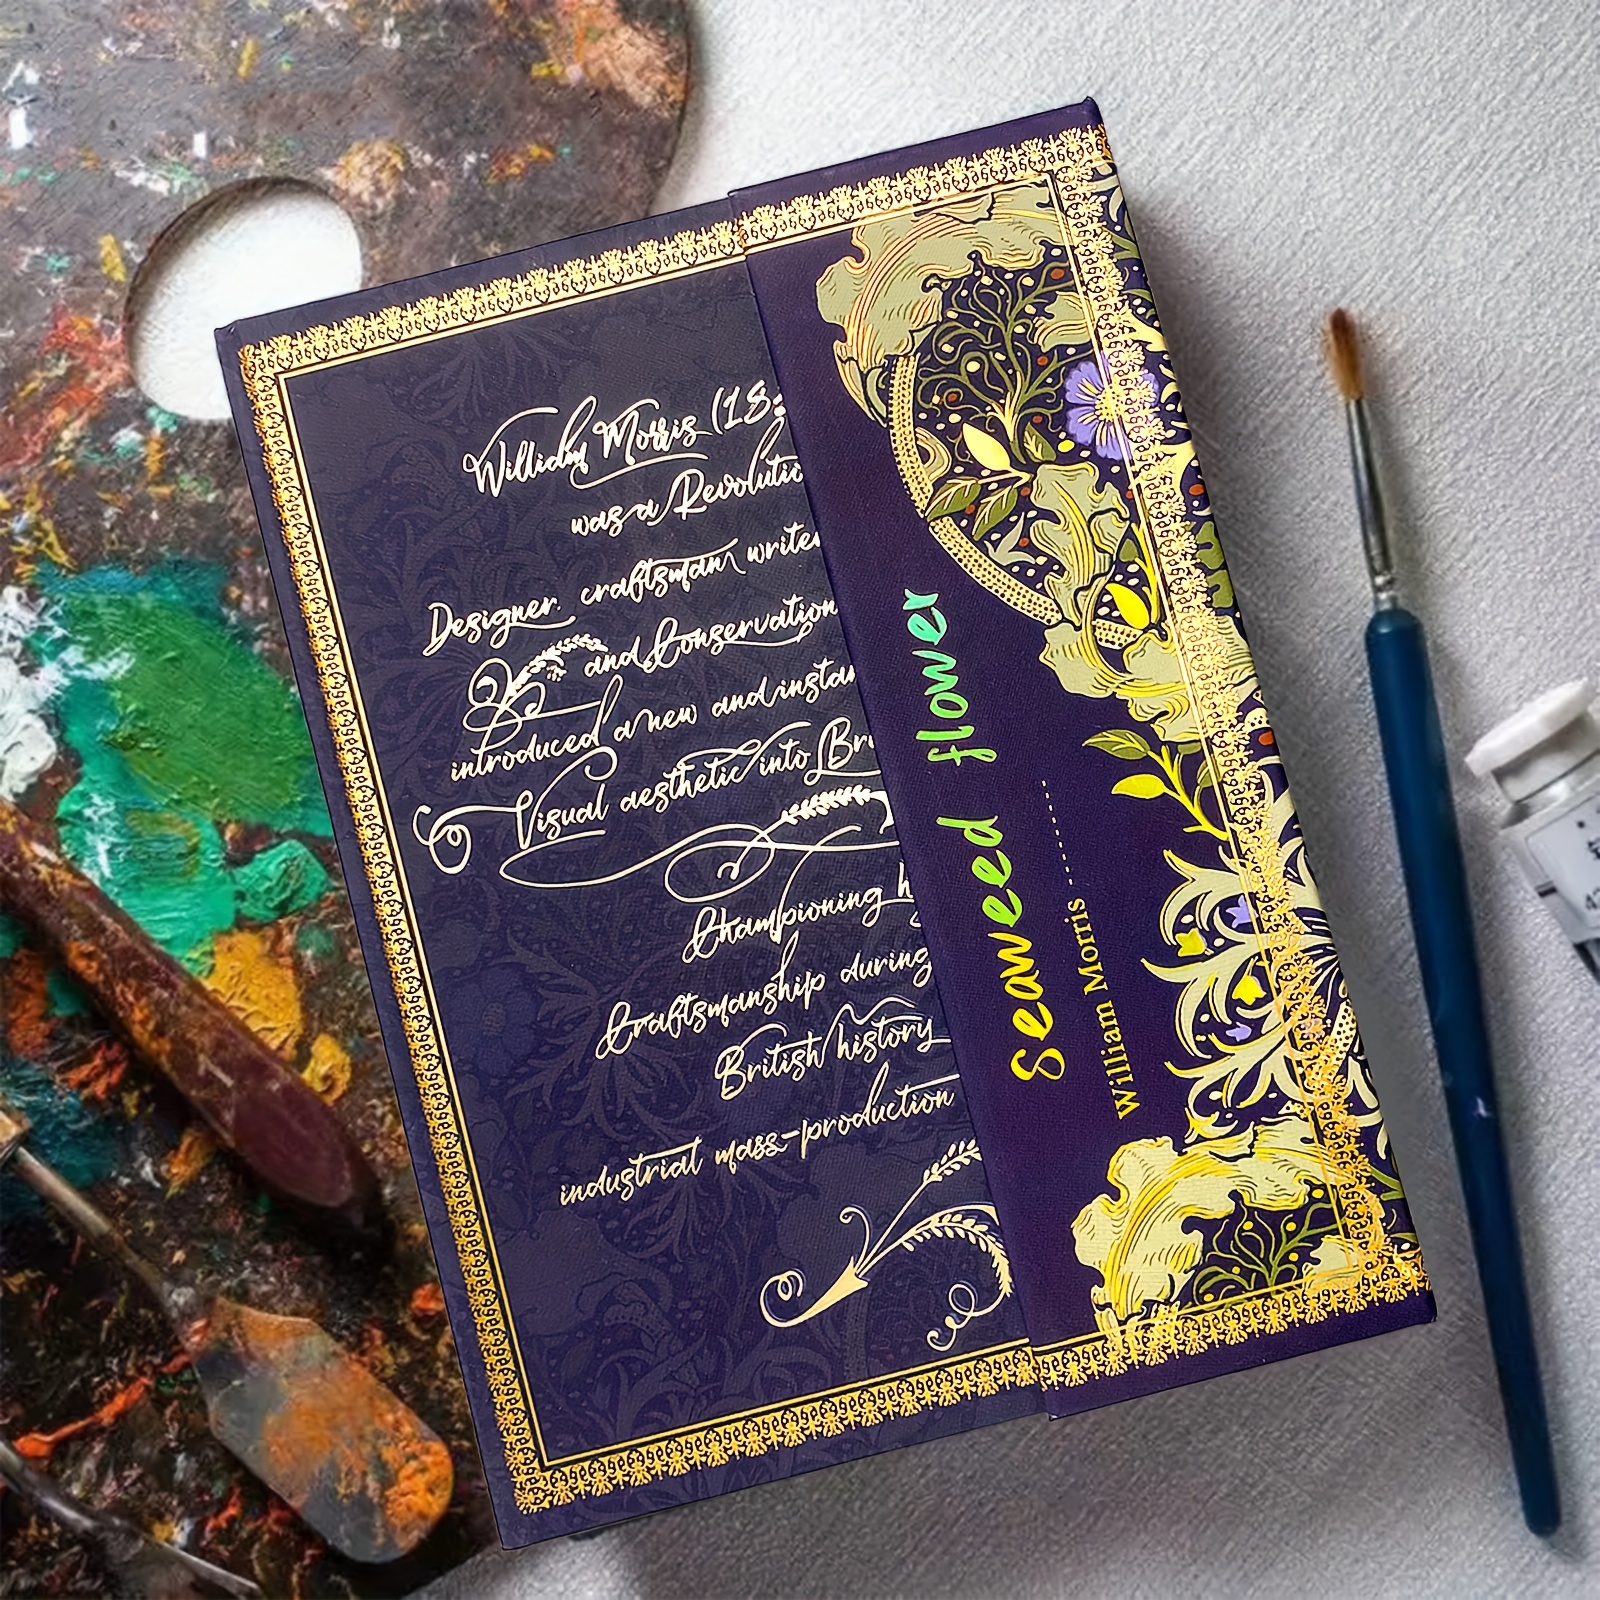 William Morris (18
was a Revolutio
Designer. craftsman writer
and Conservation
introduced a new and instan
Visual aesthetic into Bri
Championing h
Craftsmanship during
British history
industrial mass-production
Seaweed flower
William Morris